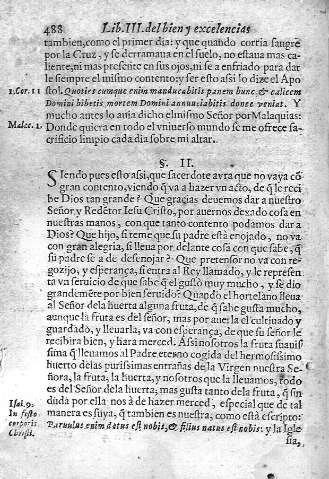 488 Lib. III. del bien y excelencias
tambien, como el primer dia: y que quando corria sangre
por la Cruz, y se derramaua en el suelo, no estaua mas ca-
liente, ni mas presente en sus ojos, ni se a enfriado para dar
le siempre el mismo contento: y ser esto assi lo dize el Apo
1. Cor. 11 stol. Quoties cumque enim manducabitis panem hunc, & calicem
Domini bibetis mortem Domini annuntiabitis donec veniat. Y
mucho antes lo auia dicho el mismo Señor por Malaquias:
Malac. 1. Donde quiera en todo el vniuerso mundo se me ofrece sa-
crificio limpio cada dia sobre mi altar.
§. II.
SIendo pues esto assi, que sacerdote aura que no vaya cõ
gran contento, viendo q̃ va a hazer vn acto, de q̃ le reci
be Dios tan grande? Que gracias deuemos dar a nuestro
Señor, y Redẽtor Iesu Cristo, por auernos dexado cosa en
nuestras manos, con que tanto contento podamos dar a
Dios? Que hijo, si teme que su padre està enojado, no va
con gran alegria, si lleua por delante cosa con que sabe, q̃
su padre se a de desenojar? Que pretensor no va con re-
gozijo, y esperança, si entra al Rey llamado, y le represen
ta vn seruicio de que sabe q̃ el gustò muy mucho, y se dio
grandemẽte por bien seruido? Quando el hortelano lleua
al Señor dela huerta alguna fruta, de q̃ sabe gusta mucho,
aunque la fruta es del señor, mas por auerla el cultiuado y
guardado, y lleuarla, va con esperança, de que su señor le
recibira bien, y hara merced. Assi nosotros la fruta suauis
sima q̃ lleuamos al Padre eterno cogida del hermosissimo
huerto delas purissimas entrañas de la Virgen nuestra Se-
ñora, la fruta, la huerta, y nosotros que la lleuamos, todo
es del Señor dela huerta; mas gusta tanto dela fruta, q̃ sin
Isai. 9. duda por ella nos à de hazer merced, especial que de tal
In festo manera es suya, q̃ tambien es nuestra, como està escripto:
corporis Paruulus enim datus est nobis, & filius natus est nobis: y la Igle
Christi. sia,